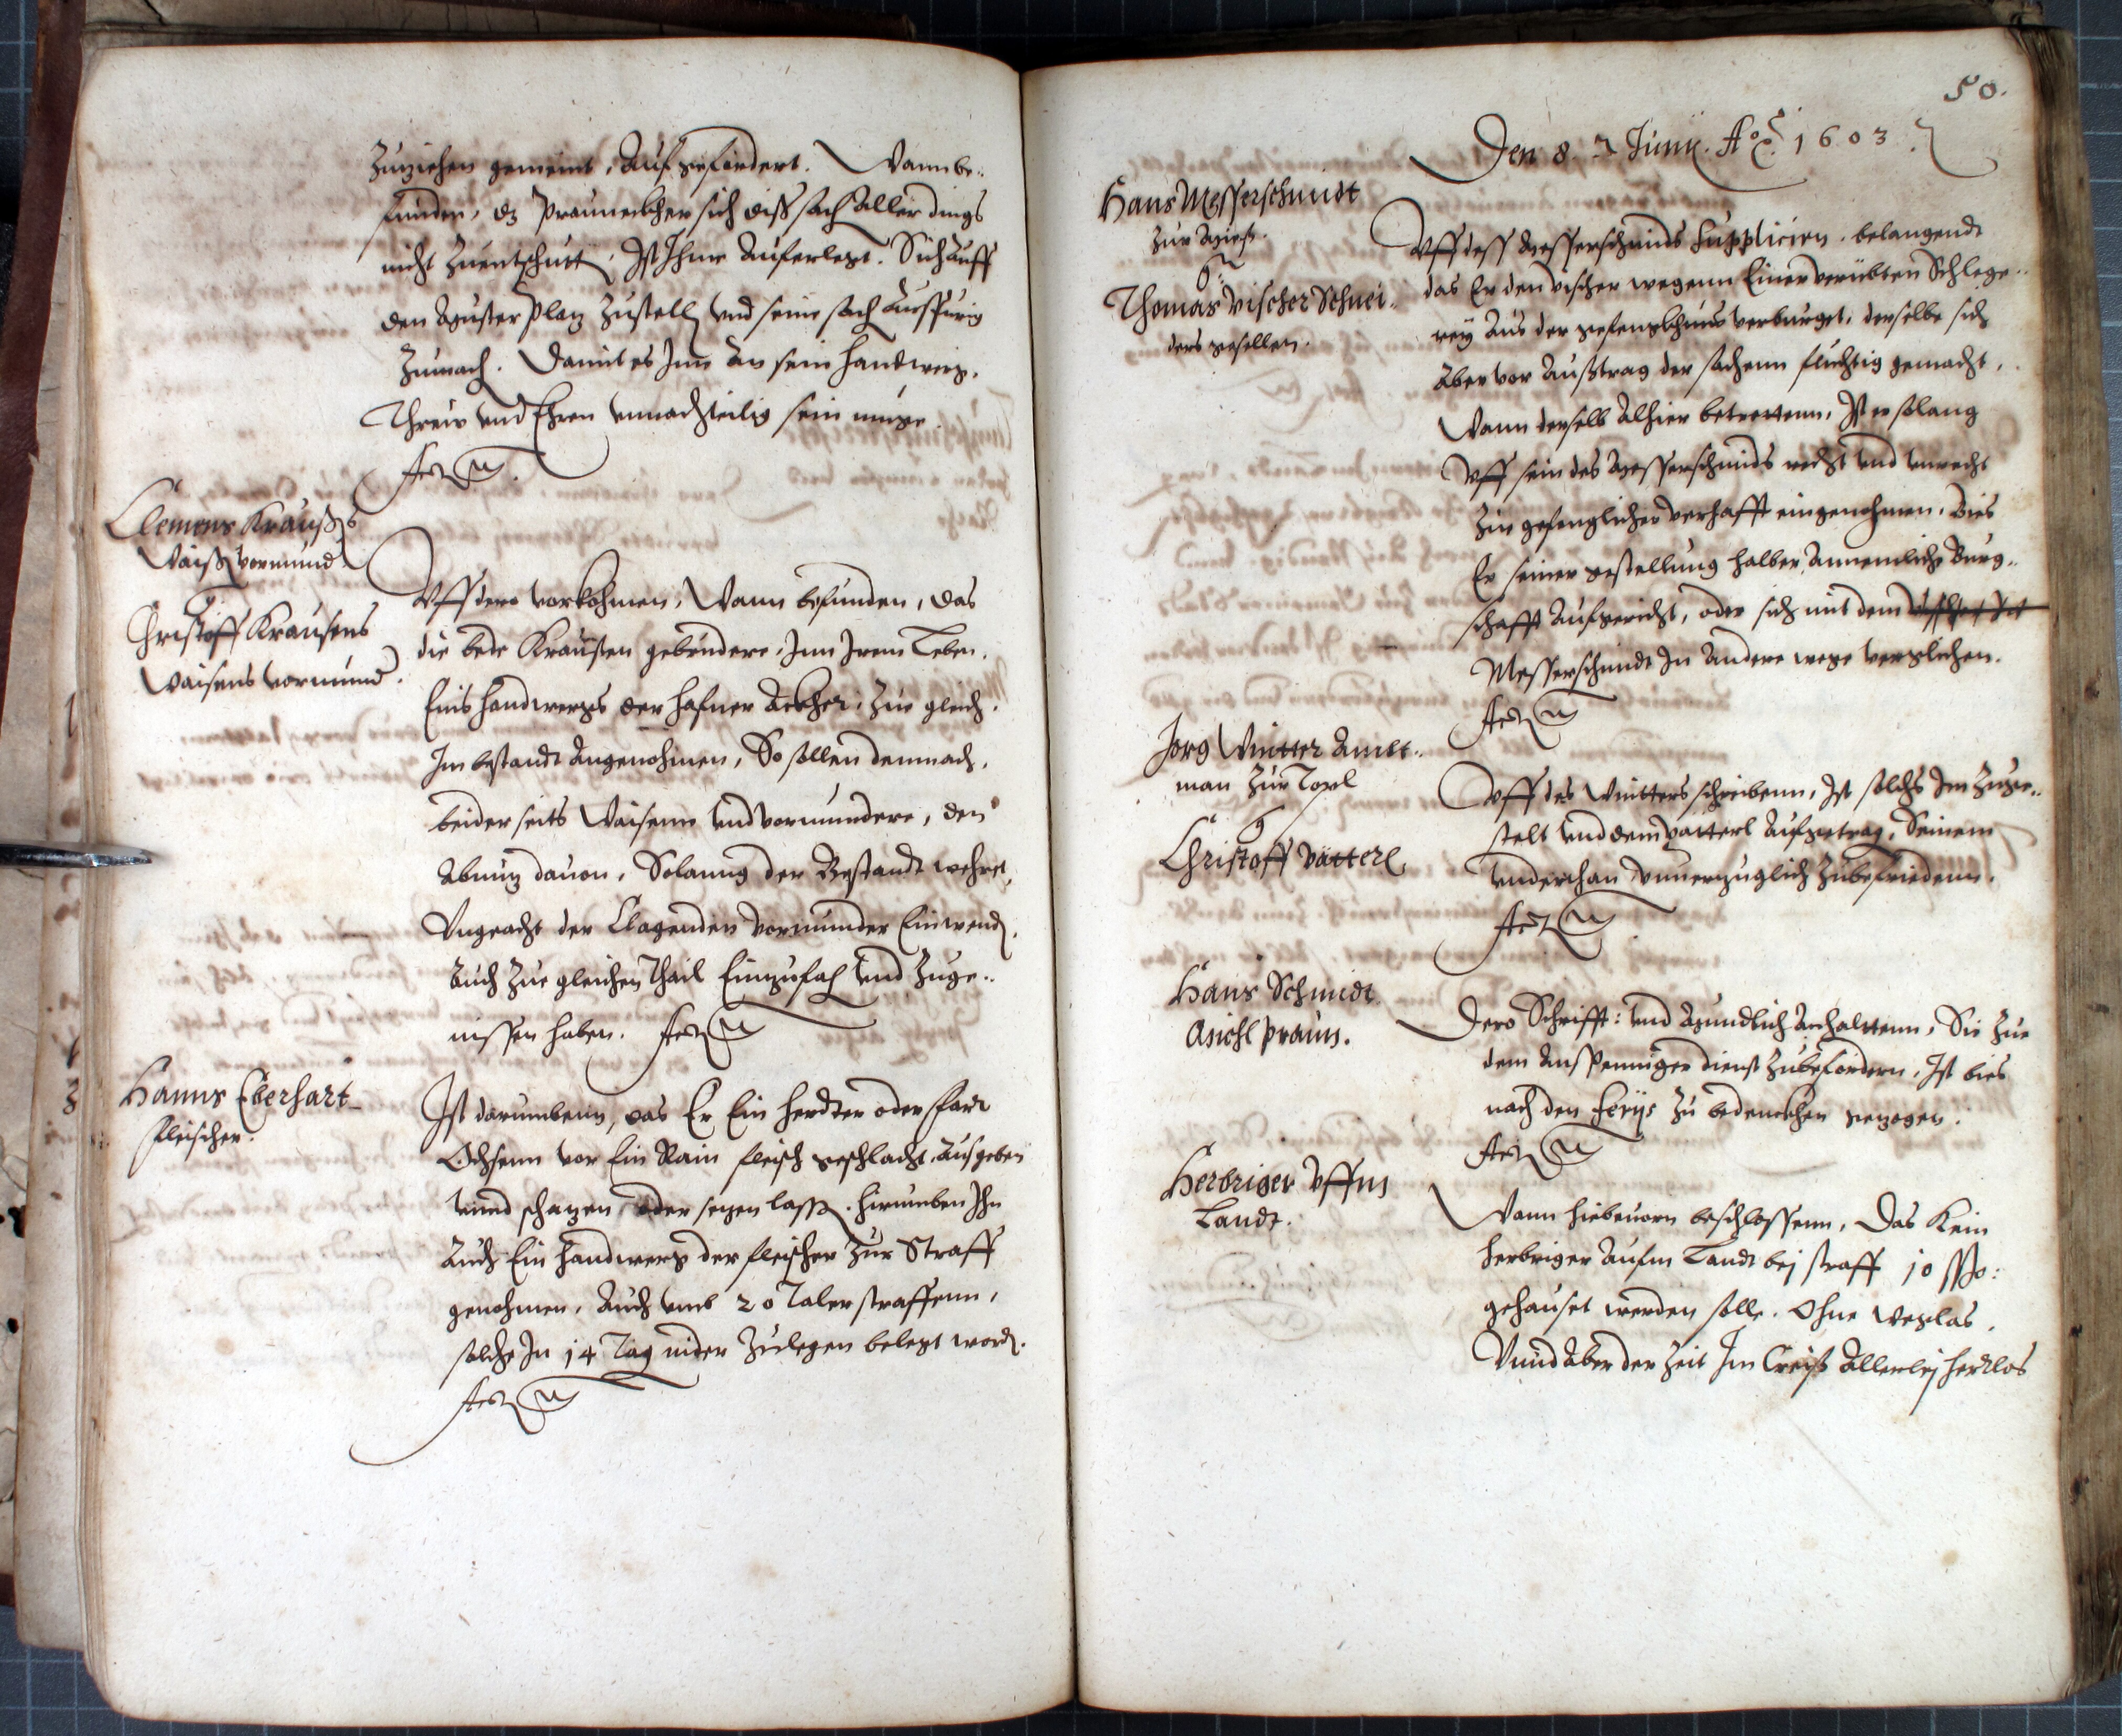 Zuziehen gemeint, Auf gefordert. Wann be¬
funden, dz Prauneckher sich diß sach aller dings
nicht Zuentschutt, Ist Ihme Auferlegt. Sich auff
den Muster Platz Zustell, vnd seine sach
Zumach. Damit es Ime an sein Handwerg,
Threw vnd Ehren vnnachteilig sein müge.
Clemens Kraußs
Waiß vormund
Christoff Krausens
Waisens vormund.
Vff dero vorkohmen, Wann befunden, das
die bede Kraußen gebrudere, Inn Irem Leben,
Eins Handwergs der Hafner Äckher, Zue gleich,
Im bestandt Angenohmen, So sollen demnach,
beiderseits Waisenn vnd vormundere, den
Abnutz dauon, Solanng der Bestandt wehret,
Vngeacht der Clagenden Vormunder Einwend,
Auch Zue gleichen Thail Einzufah vnd Zuge¬
niessen haben.
Hanns Eberhart
fleischer.
Ist darumbenn, das Er Ein
Ochsenn vor Ein Rain fleisch geschlacht, Ausgeben
vnnd schatzen, oder setzen lass. hirumben Ihn
Auch Ein Handwerg der fleischer Zur Straff
genohmen, Auch vmb 20 Taler straffenn,
solche In 14 Tag nider Zulegen belegt word.
50.
Den 8. Junij. Ao. 1603.
Hans Messerschmidt
Zur Mies.
Thomas Vischer Schnei¬
ders gesellen.
Vff dess Messerschmids Supplicirn, belangendt
das Er den Vischer wegenn Einer verübten Schlege¬
rey Aus der gefengkhnus verburget, derselbe sich
Aber vor Außtrag der sachenn fluchtig gemacht,
Wann derselb Alhier betrettenn, Ist er solang
Vff sein des Messerschmids recht vnd vnrecht
Zue gefenglicher verhafft eingenohmen, Bies
Er seiner gestellung halber, Annemliche Burg¬
schafft Aufgericht, oder sich mit dem
Messerschmidt In Andere wege verglichen.
Jorg Wintter Ambt¬
man Zur Topl
Christoff Vätterl
Vff des Wintters schreibenn, Ist solchs Im Zuge¬
stelt vnd dem Vatterl Aufgetrag, Seinem
Vnderthan vnuerzuglich Zubefriedenn.
Hans Schmidt
Michl Praun.
Dero Schrifft: vnd Mundlich Anhalttenn, Sie Zue
dem dienst Zubefördern, Ist bies
nach den ferijs Zu bedenckhen getzogen.
Herbriger Vffm
Landt.
Wann hiebeuorn beschlossenn, Das Kein
Herbriger Aufm Landt bey straff 10 ßo:
gehauset werden solle. Ohne
Vnnd Aber der Zeit Im Creiß Allerley herrlos